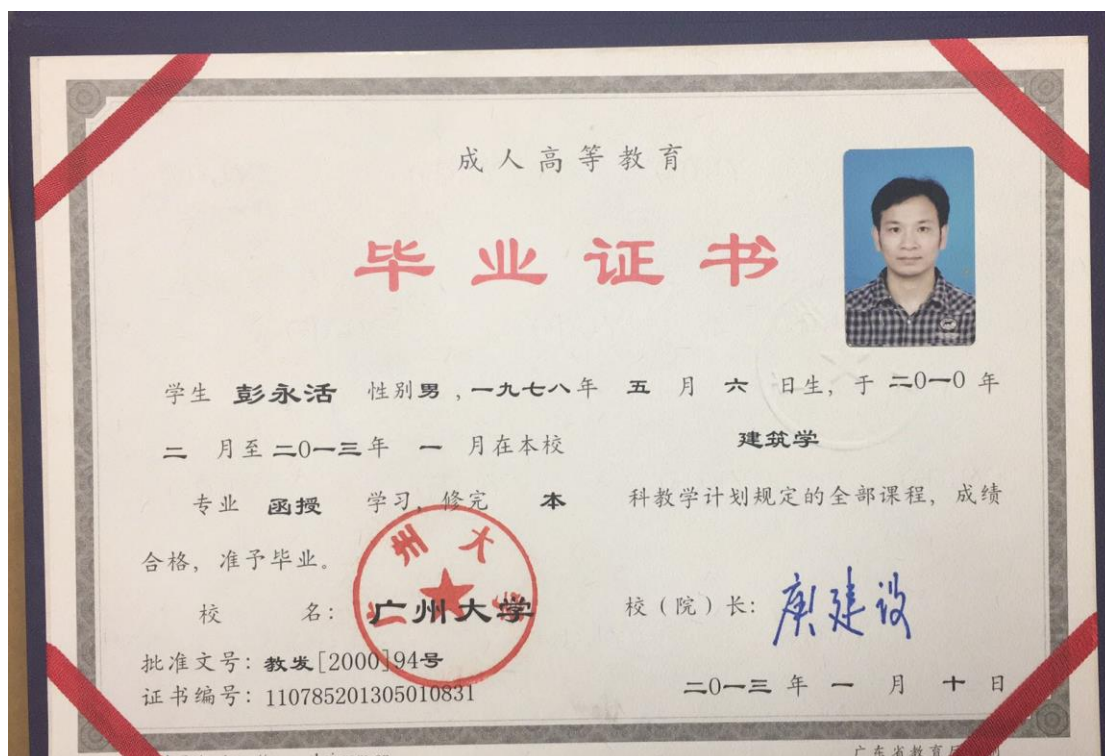 成人高等教育
毕业证书
学生 彭永活 性别男,一九七八年 五 月 六 日生,于 二0一0 年
二 月至 二0一三年 一 月在本校 建筑学
专业 函授 学习,修完 本 科教学计划规定的全部课程,成绩
合格,准予毕业。
校 名: 广州大学 校(院)长: 庾建设
广州大学
批准文号:教发[2000]94号
证书编号:110785201305010831 二0一三 年 一 月 十 日
广东省教育厅